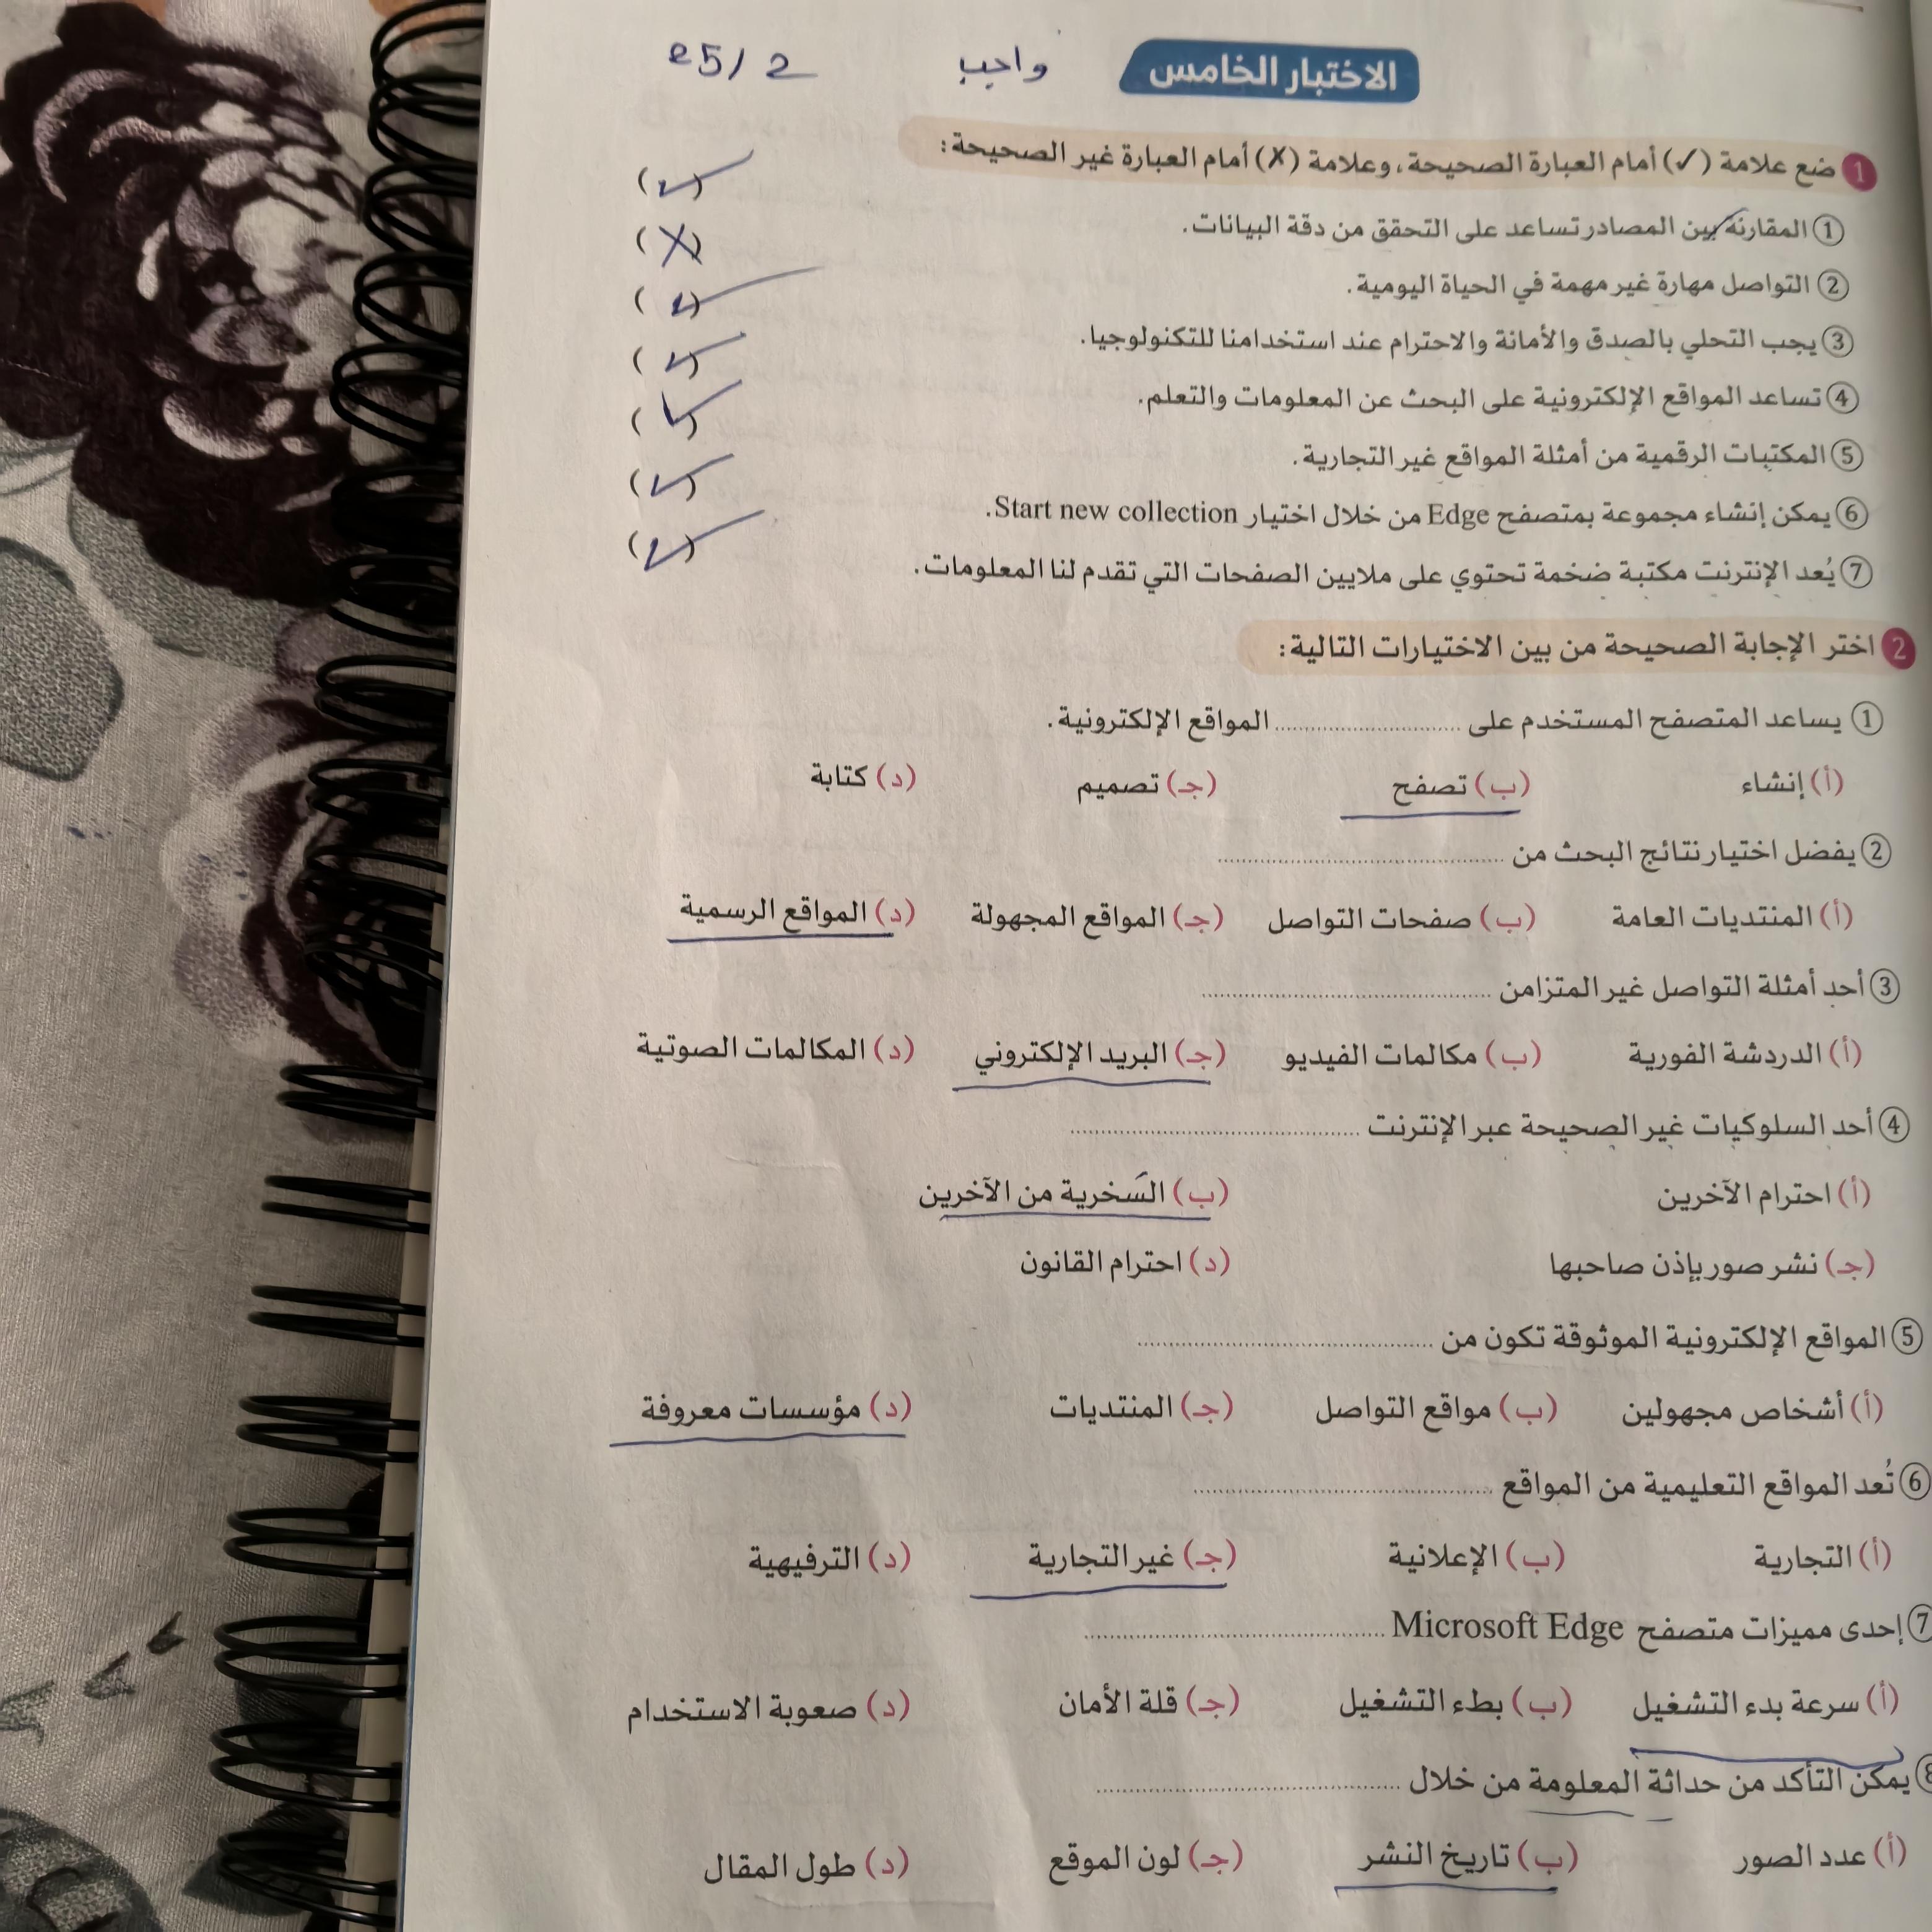 الاختبار الخامس واجب 25/2
1 ضع علامة (✓) أمام العبارة الصحيحة، وعلامة (X) أمام العبارة غير الصحيحة:
① المقارنة بين المصادر تساعد على التحقق من دقة البيانات. (✓)
② التواصل مهارة غير مهمة في الحياة اليومية. (X)
③ يجب التحلي بالصدق والأمانة والاحترام عند استخدامنا للتكنولوجيا. (✓)
④ تساعد المواقع الإلكترونية على البحث عن المعلومات والتعلم. (✓)
⑤ المكتبات الرقمية من أمثلة المواقع غير التجارية. (✓)
⑥ يمكن إنشاء مجموعة بمتصفح Edge من خلال اختيار Start new collection. (✓)
⑦ يُعد الإنترنت مكتبة ضخمة تحتوي على ملايين الصفحات التي تقدم لنا المعلومات. (✓)
2 اختر الإجابة الصحيحة من بين الاختيارات التالية:
① يساعد المتصفح المستخدم على ............................ المواقع الإلكترونية.
(أ) إنشاء (ب) تصفح (جـ) تصميم (د) كتابة
② يفضل اختيار نتائج البحث من ............................
(أ) المنتديات العامة (ب) صفحات التواصل (جـ) المواقع المجهولة (د) المواقع الرسمية
③ أحد أمثلة التواصل غير المتزامن ............................
(أ) الدردشة الفورية (ب) مكالمات الفيديو (جـ) البريد الإلكتروني (د) المكالمات الصوتية
④ أحد السلوكيات غير الصحيحة عبر الإنترنت ............................
(أ) احترام الآخرين (ب) السَخرية من الآخرين
(جـ) نشر صور بإذن صاحبها (د) احترام القانون
⑤ المواقع الإلكترونية الموثوقة تكون من ............................
(أ) أشخاص مجهولين (ب) مواقع التواصل (جـ) المنتديات (د) مؤسسات معروفة
⑥ تُعد المواقع التعليمية من المواقع ............................
(أ) التجارية (ب) الإعلانية (جـ) غير التجارية (د) الترفيهية
⑦ إحدى مميزات متصفح Microsoft Edge ............................
(أ) سرعة بدء التشغيل (ب) بطء التشغيل (جـ) قلة الأمان (د) صعوبة الاستخدام
⑧ يمكن التأكد من حداثة المعلومة من خلال ............................
(أ) عدد الصور (ب) تاريخ النشر (جـ) لون الموقع (د) طول المقال